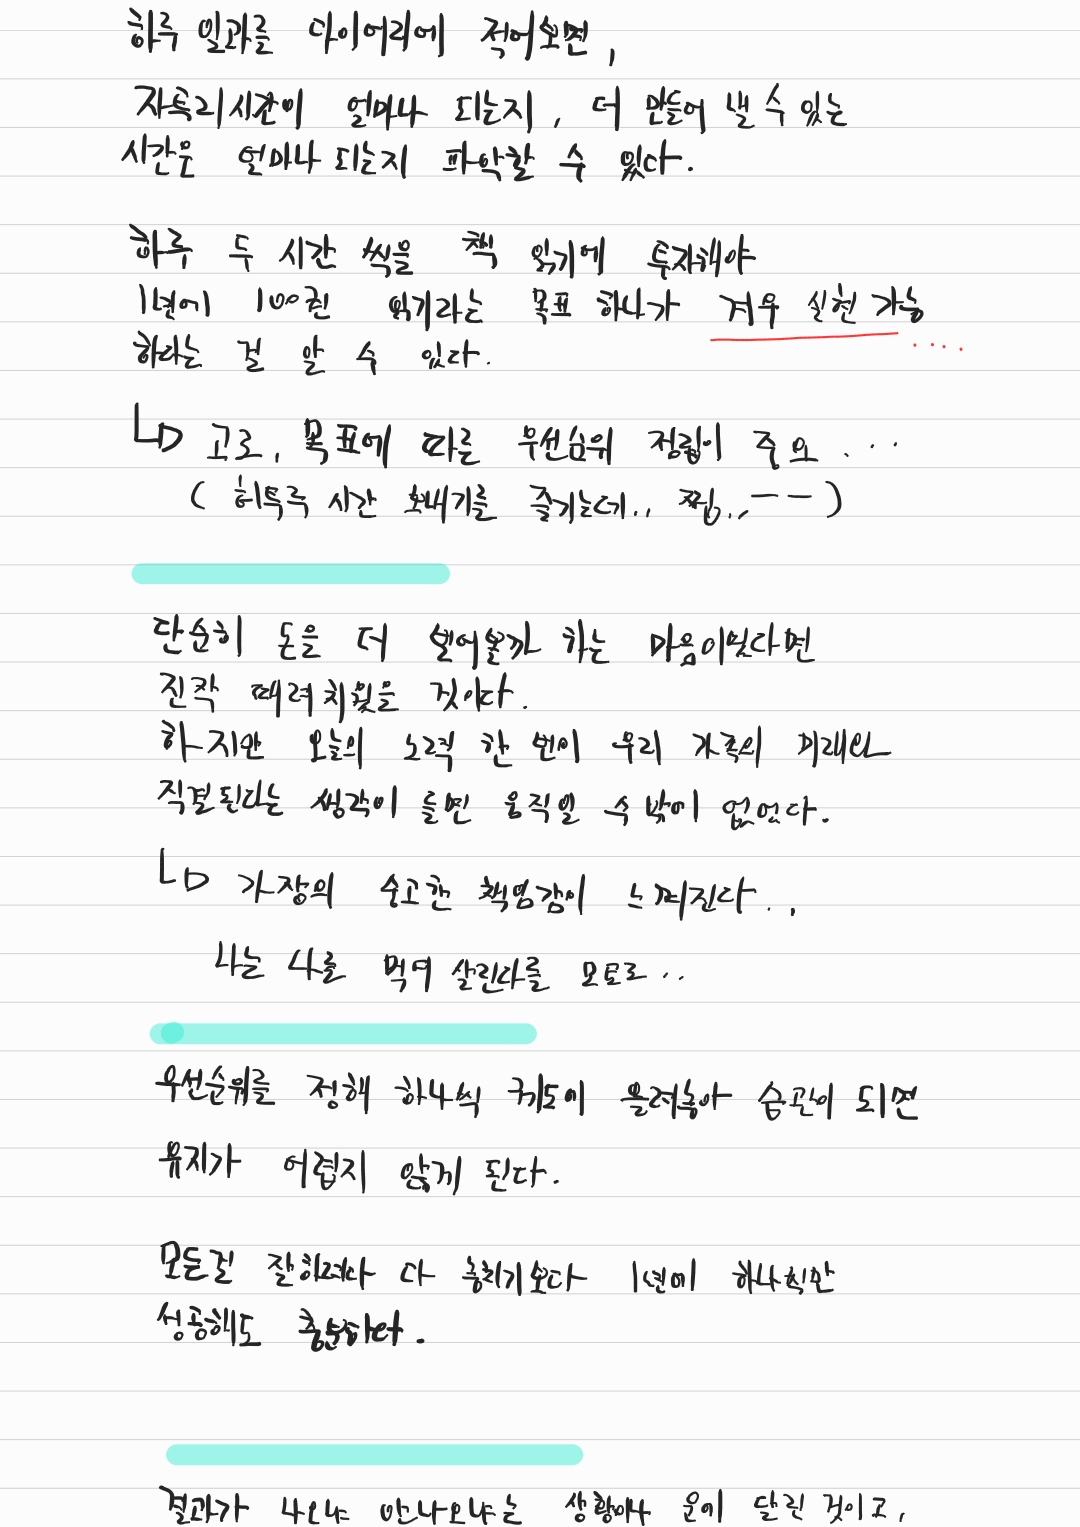 하루 일과를 다이어리에 적어보면,
자투리시간이 얼마나 되는지, 더 만들어 낼 수 있는
시간은 얼마나 되는지 파악할 수 있다.
하루 두 시간 씩을 책 읽기에 투자해야
1년에 100권 읽기라는 목표 하나가 겨우 실현 가능
하다는 걸 알 수 있다.
고로, 목표에 따른 우선순위 정립이 주요...
(허투루 시간 보내기를 즐기는데.. 찝..ㅡㅡ)
단순히 돈을 더 벌어볼까 하는 마음이었다면
진작 때려치웠을 것이다.
하지만 오늘의 노력 한 번이 우리 가족의 미래와
직결된다는 생각이 들면 움직일 수 밖에 없었다.
가장의 숭고한 책임감이 느껴진다..
나는 나를 먹여 살린다를 모토로...
우선순위를 정해 하나씩 궤도에 올려놓아 습관이 되면
유지가 어렵지 않게 된다.
모든걸 잘하려다 다 놓치기보다 1년에 하나씩만
성공해도 충분하다.
결과가 나오냐 안나오냐는 상황이나 운에 달린 것이고,